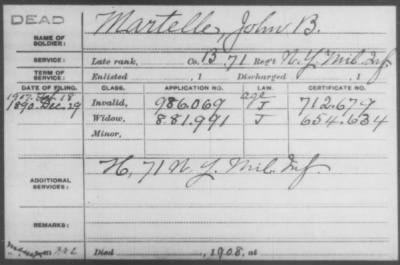 DEAD
NAME OF SOLDIER: Martelle, John B.
SERVICE: Late rank, Co. B, 71 Reg't N.Y. Mil. Inf.
TERM OF SERVICE: Enlisted , 1 Discharged , 1
DATE OF FILING. CLASS. APPLICATION NO. LAW. CERTIFICATE NO.
1907. Feb. 18 Invalid, 986.069 age J 712.679
1890. Dec. 29 Widow, 881.991 J 654.634
Minor,
ADDITIONAL SERVICES: H, 71 N.Y. Mil. Inf.
REMARKS:
Died , 1908, at